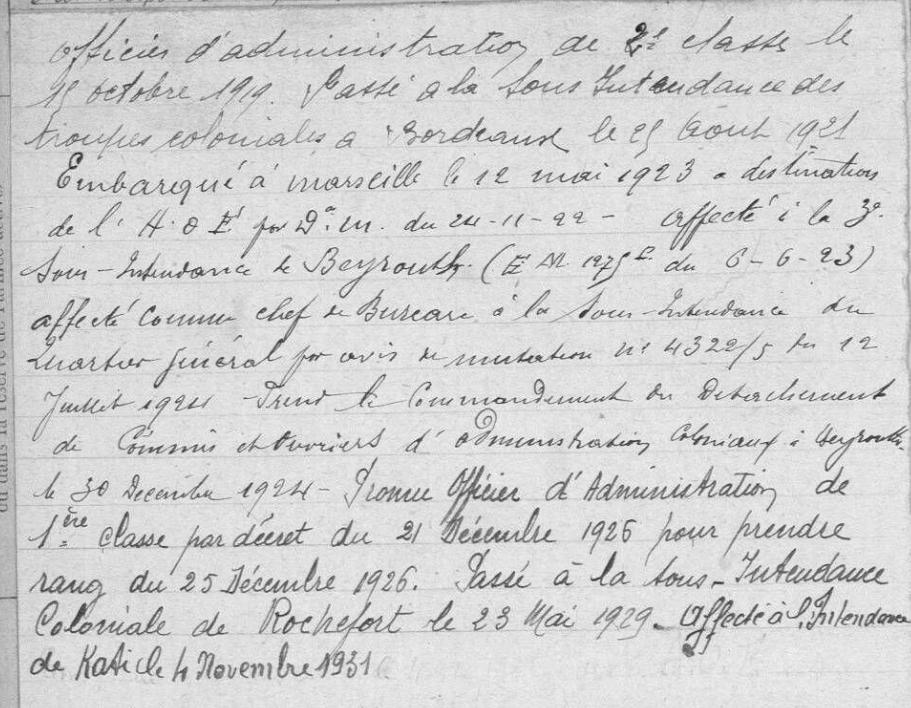 Officier d'administration de 2e classe le
15 octobre 1919. Passé a la Sous Intendance des
troupes coloniales a Bordeaux le 25 Aout 1921
Embarqué à marseille le 12 mai 1923 a destination
de l' du 24-11-22 - affecté à la 3e
Sous-Intendance de Beyrouth. (E M 1275 du 6-6-23)
affecté comme chef de Bureau à la Sous-Intendance du
Quartier Général par avis de mutation no 4322/5 du 12
Juillet 1924 - Prend le Commandement du Detachement
de Commis et Ouvriers d'administration Coloniaux à Beyrouth
le 30 Decembre 1924 - Promu Officier d'Administration de
1ère classe par décret du 21 Décembre 1926 pour prendre
rang du 25 Décembre 1926. Passé à la Sous-Intendance
Coloniale de Rochefort le 23 Mai 1929. Affecté à l'Intendance
de Kati le 4 Novembre 1931